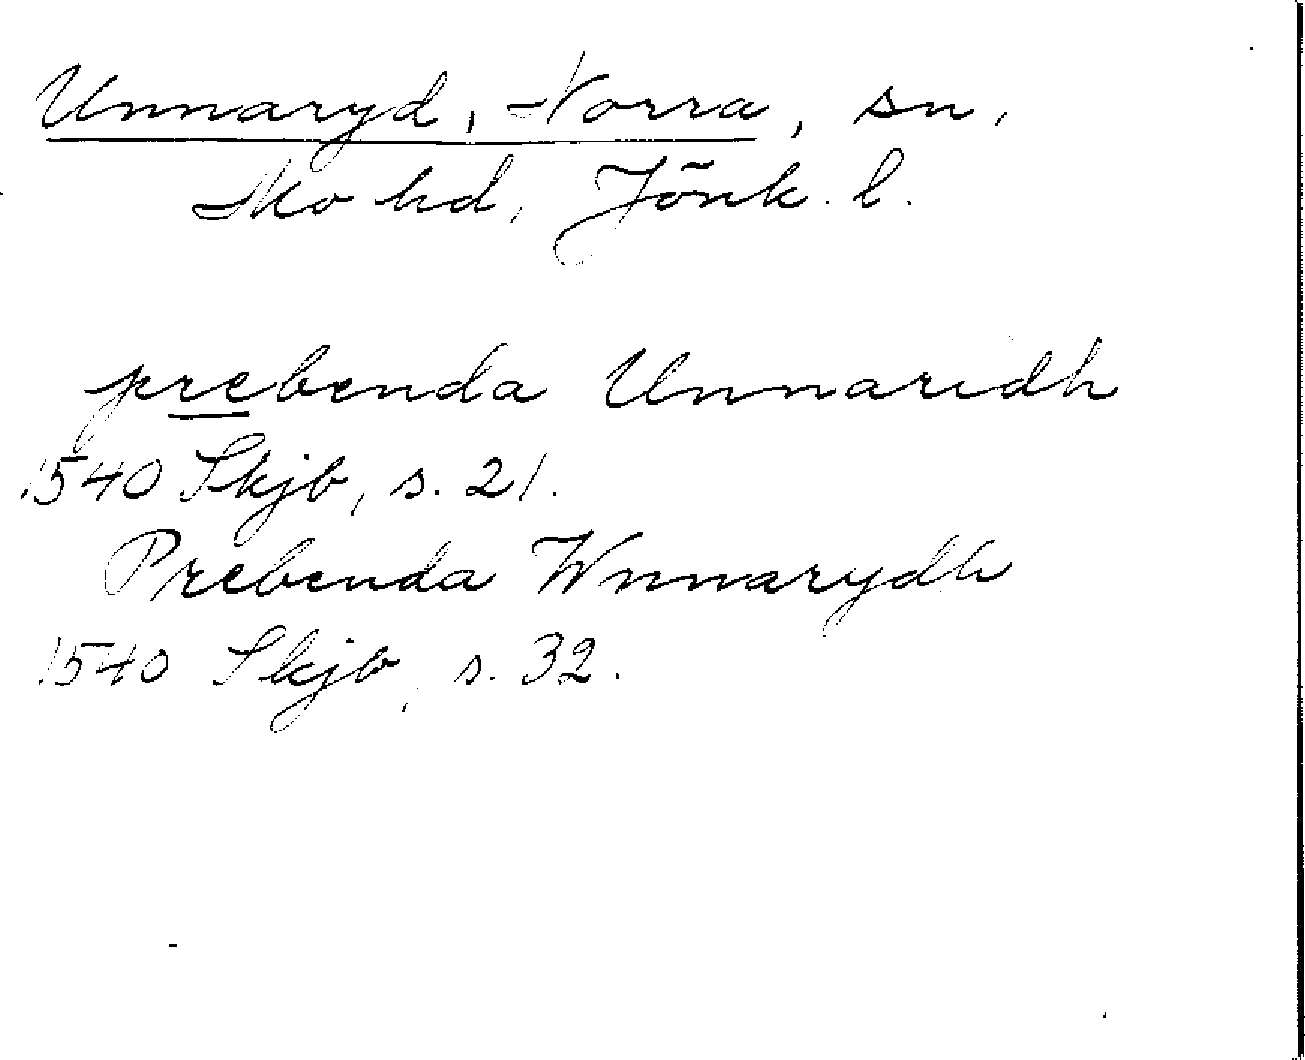 Unnaryd, Norra, sn,
Mo hd, Jönk. l.
prebenda Unnaridh
1540 Skjb, s. 21.
Prebenda Wnnarydh
1540 Skjb, s. 32.